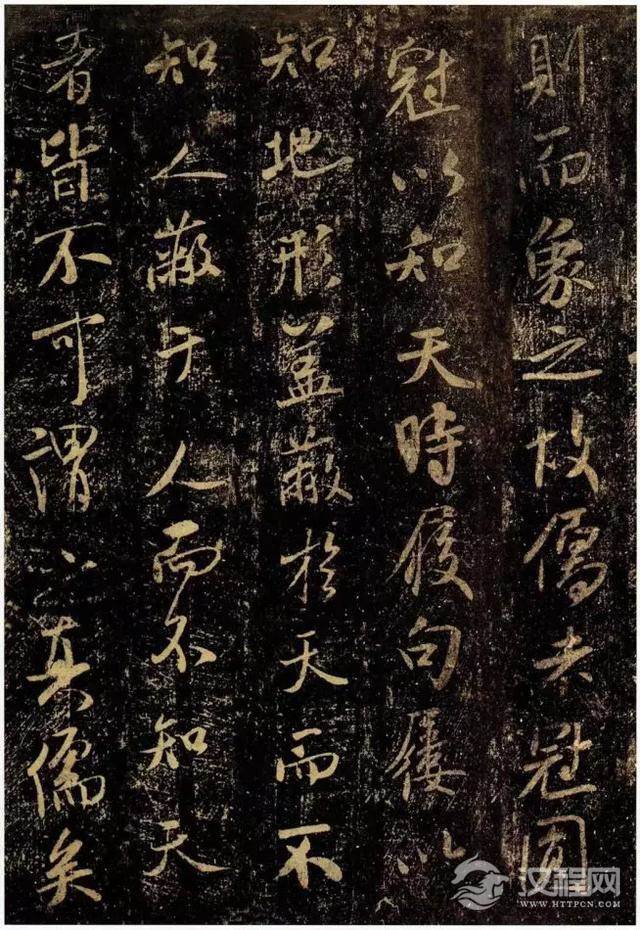 則而象之故儒者冠圓
冠以知天時履句屨以
知地形盖蔽於天而不
知人蔽于人而不知天
者皆不可謂之真儒矣
汉程网
WWW.HTTPCN.COM